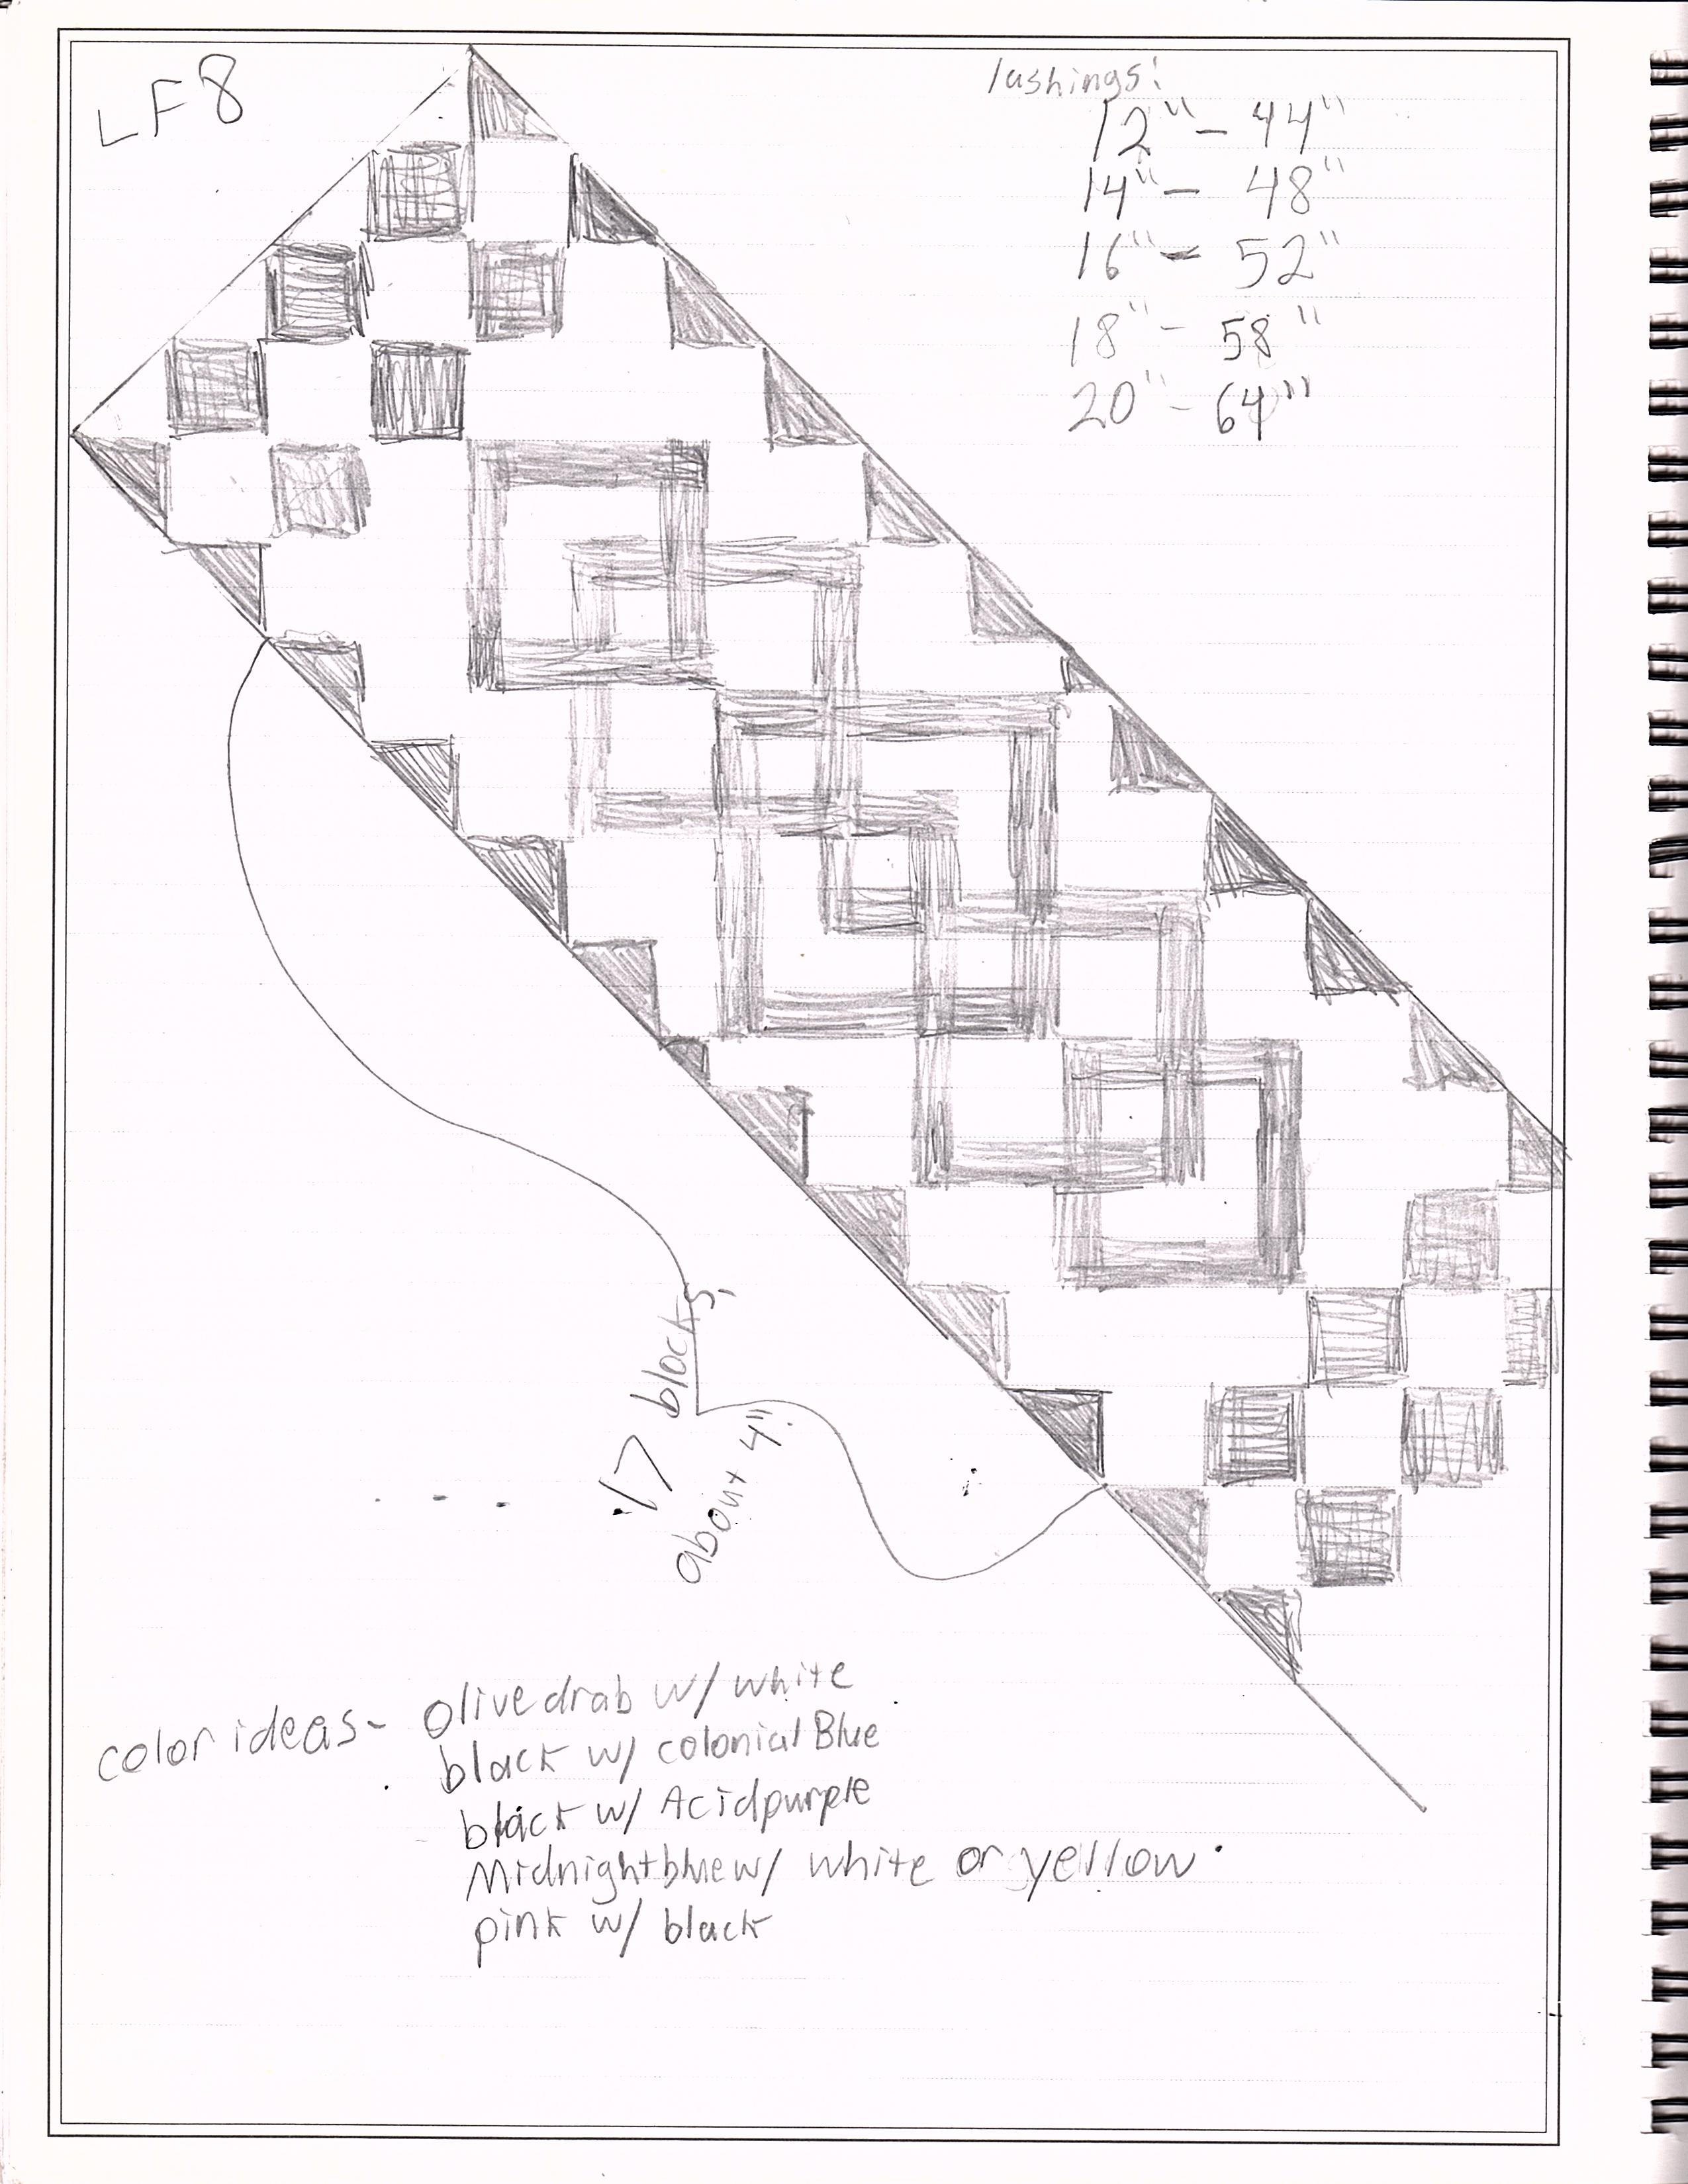 LF8
lashings:
12" - 44"
14" - 48"
16" - 52"
18" - 58"
20" - 64"
17 blocks,
about 4".
color ideas- olive drab w/ white
black w/ colonial Blue
black w/ Acid purple
Midnight blue w/ white or yellow.
pink w/ black